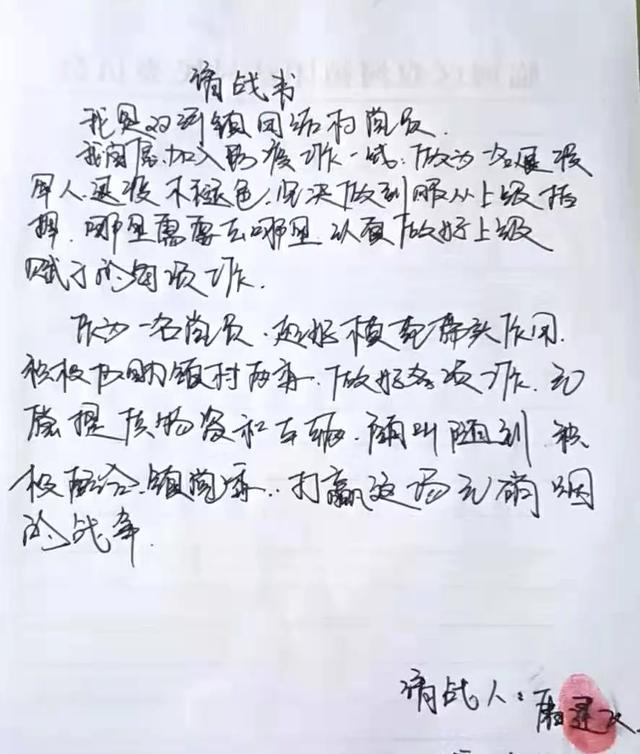 请战书
我是双河镇团结村党员.
我自愿加入防疫工作一线.做为一名退役
军人.退役不褪色.坚决做到服从上级指
挥.哪里需要去哪里.认真做好上级
赋予的每项工作.
作为一名党员.起好模范带头作用.
积极协助镇村两委.做好各项工作.无
偿提供物资和车辆.随叫随到.积
极配合.镇党委..打赢这场无硝烟
的战争.
请战人: